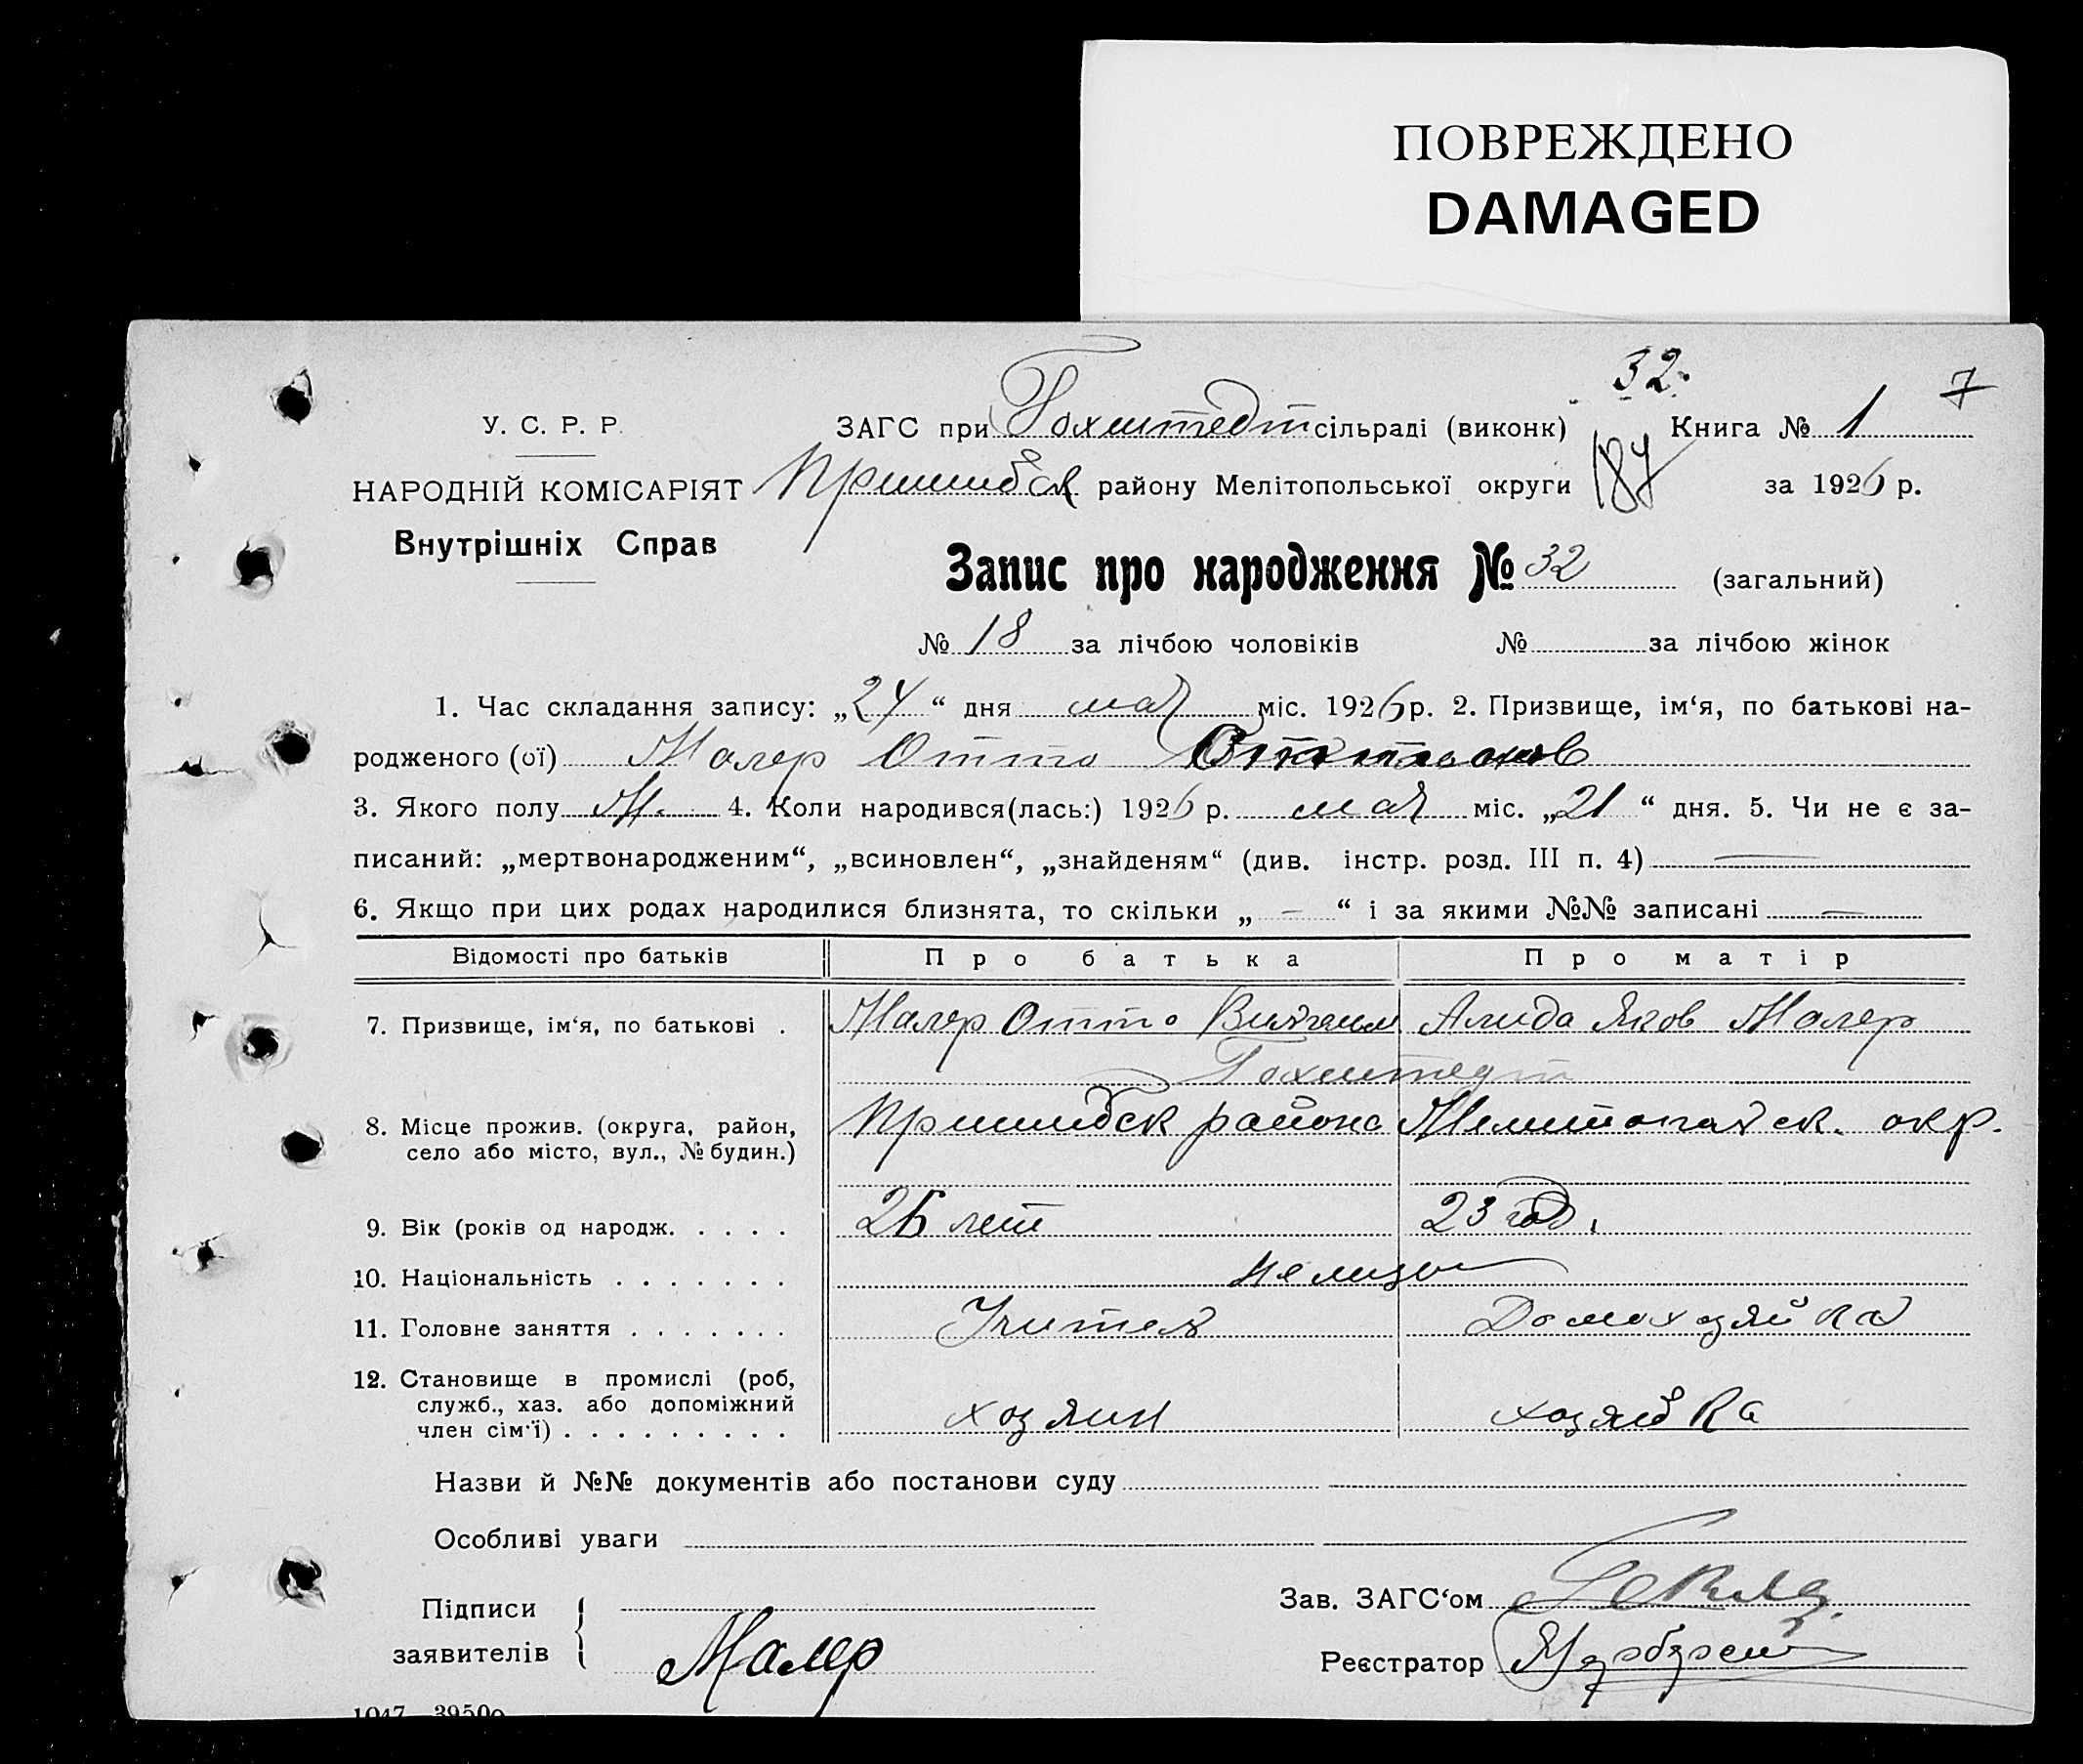 ПОВРЕЖДЕНО
DAMAGED
32.
7
У. С. Р. Р.
ЗАГС при Гохштедт сільраді (виконк) Книга № 1
НАРОДНІЙ КОМІСАРІЯТ
Пришибск району Мелітопольської округи 187 за 1926 р.
Внутрішніх Справ
Запис про народження № 32 (загальний)
№ 18 за лічбою чоловіків № за лічбою жінок
1. Час складання запису: „24“ дня мая міс. 1926 р. 2. Призвище, ім‘я, по батькові на-
родженого (ої) Малер Отто
3. Якого полу М. 4. Коли народився(лась:) 1926 р. мая міс. „21“ дня. 5. Чи не є за-
писаний: „мертвонародженим“, „всиновлен“, „знайденям“ (див. інстр. розд. III п. 4) —
6. Якщо при цих родах народилися близнята, то скільки „ – “ і за якими №№ записані —
Відомості про батьків Про батька Про матір
7. Призвище, ім‘я, по батькові . Малер Отто Вильгельм Алида Яков Малер
Гохштедт
8. Місце прожив. (округа, район, Пришибск района Мелитопольск. окр.
село або місто, вул., № будин.)
9. Вік (років од народж. . . . . 26 лет 23 год.
10. Національність . . . . . . . немцы
11. Головне заняття . . . . . . . Учитель Домохозяйка
12. Становище в промислі (роб,
служб., хаз. або допоміжний хозяин хозяйка
член сім‘ї) . . . . . . . . .
Назви й №№ документів або постанови суду
Особливі уваги
Зав. ЗАГС‘ом
Підписи
заявителів Малер
Реєстратор
1047 3950